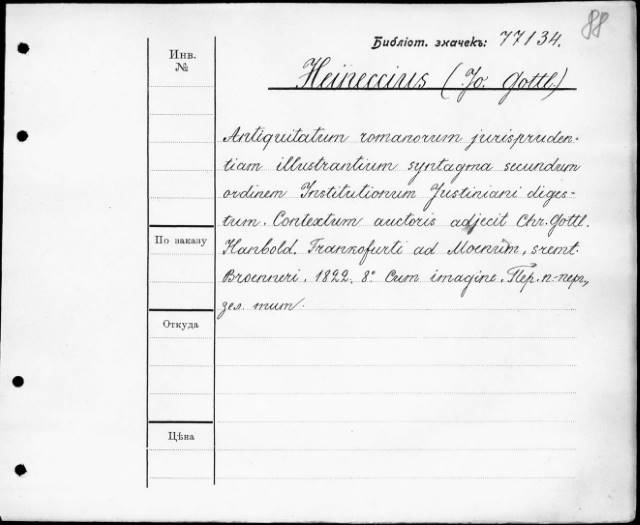 88
Библiот. значекъ: 77134.
Инв.
№
Heineccius (Jo. Gottl.)
Antiquitatum romanorum jurispruden-
tiam illustrantium syntagma secundum
ordinem Institutionum Justiniani diges-
tum. Contextum auctoris adjecit Chr. Gottl.
По заказу
Hanbold. Francofurti ad Moenum, sremt.
Broenneri. 1822. 8°. Cum imagine. Пер. п-перг,
зел. тит.
Откуда
Цѣна